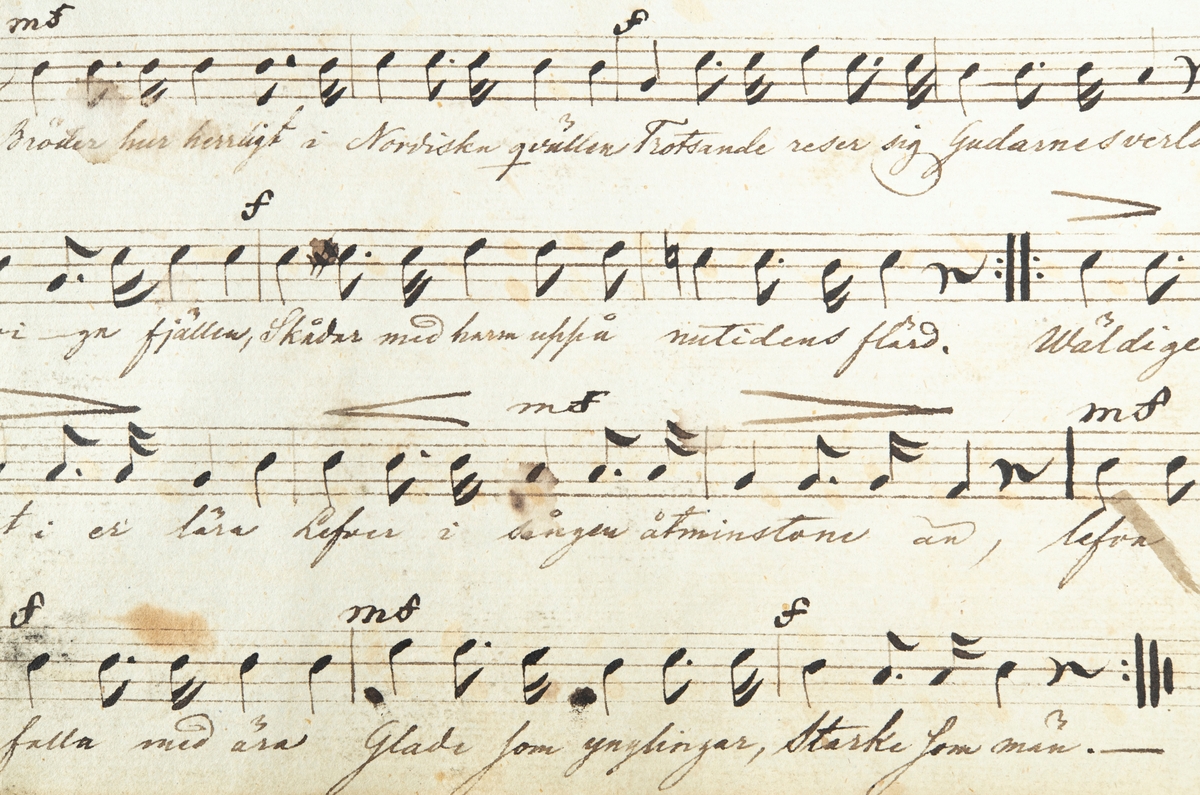 mf f
Bröder hur herrligt i Nordiska qvällen Trotsande reser sig Gudarnes verld
f
vi-ga fjällen, Skådar med harm uppå nutidens flärd. Wäldige
mf mf
t i er lära Lefver i sången åtminstone än, lefva
f mf f
falla med ära Glade som ynglingar, Starke som män. —